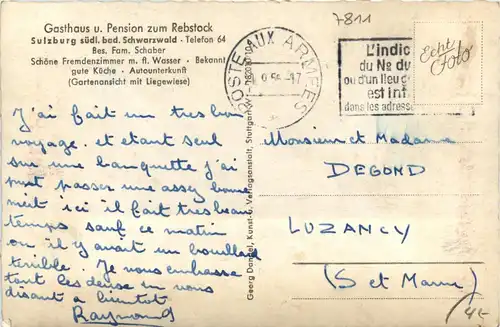 7811
Gasthaus u. Pension zum Rebstock
Sulzburg südl. bad. Schwarzwald · Telefon 64
Bes. Fam. Schaber
Schöne Fremdenzimmer m. fl. Wasser · Bekannt
gute Küche · Autounterkunft
(Gartenansicht mit Liegewiese)
POSTE AUX ARMEES
L'indic
du No du
ou d'un lieu d
est int
dans les adresse
Echt
Foto
J'ai fait un tres bon
voyage. et etant seul
sur une banquette j'ai
put passer une assez bonne
nuit ici il fait tres beau
temps sauf ce matin
on il y avait un brouillard
terrible. Je vous embrasse
tout les deux en vous
disant a bientot
Raymond
Georg Dangel, Kunst- u. Verlagsanstalt, Stuttgart-W
Monsieur et Madame
DEGOND
LUZANCY
(S et Marne)
4.-